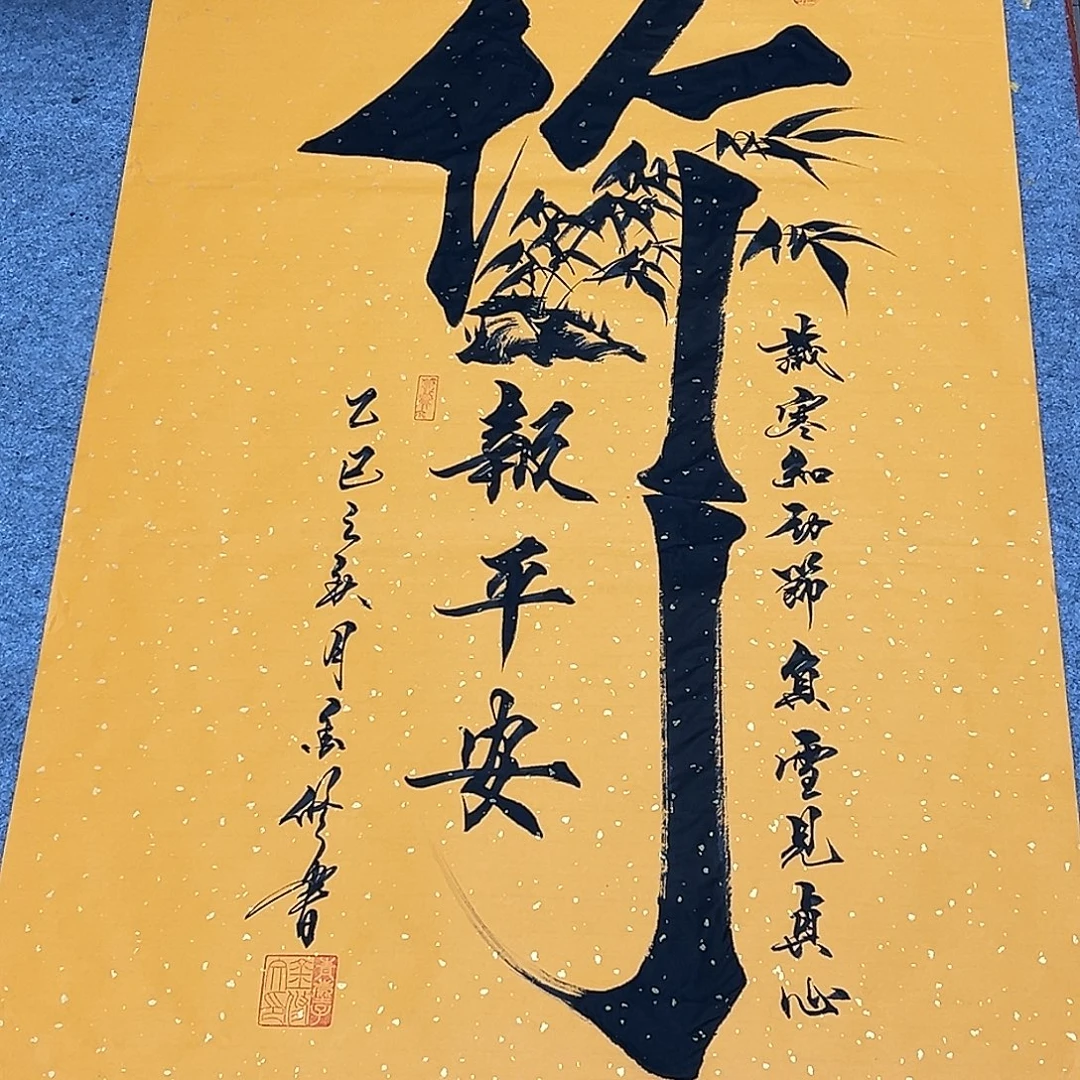 歲寒知勁節負雪見貞心
竹
報平安
乙巳之夏月金修書